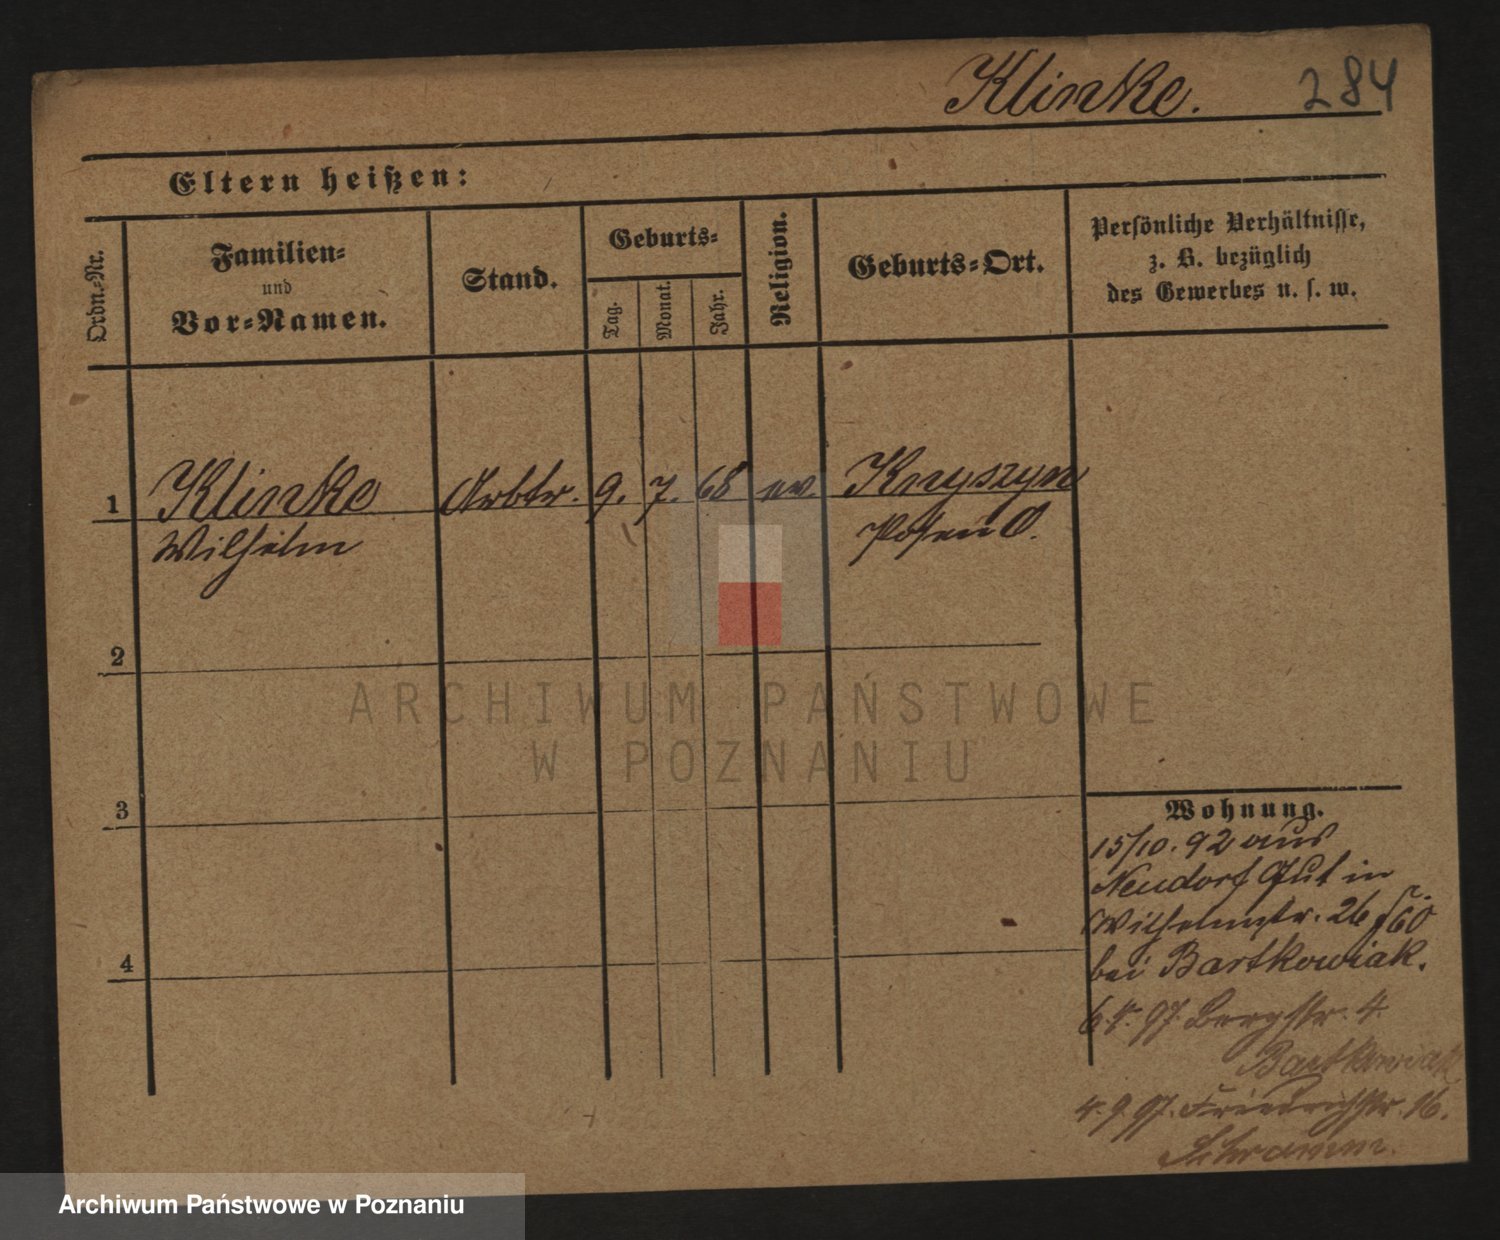 Klinke. 284
Eltern heißen:
Ordn.-Nr.
Familien-
und
Vor-Namen.
Stand.
Geburts-
Tag.
Monat.
Jahr.
Religion.
Geburts-Ort.
Persönliche Verhältnisse,
z. B. bezüglich
des Gewerbes u. s. w.
1 Klinke Arbtr. 9. 7. 68 ev Knyszyn
Wilhelm Posen O.
2
3
4
Wohnung.
15/10. 92 aus
Neudorf Gut in
Wilhelmstr. 26
bei Bartkowiak.
97. Bergstr. 4.
Bartkowiak
4. 9. 97. Friedrichstr. 16.
Schramm.
ARCHIWUM PAŃSTWOWE
W POZNANIU
Archiwum Państwowe w Poznaniu